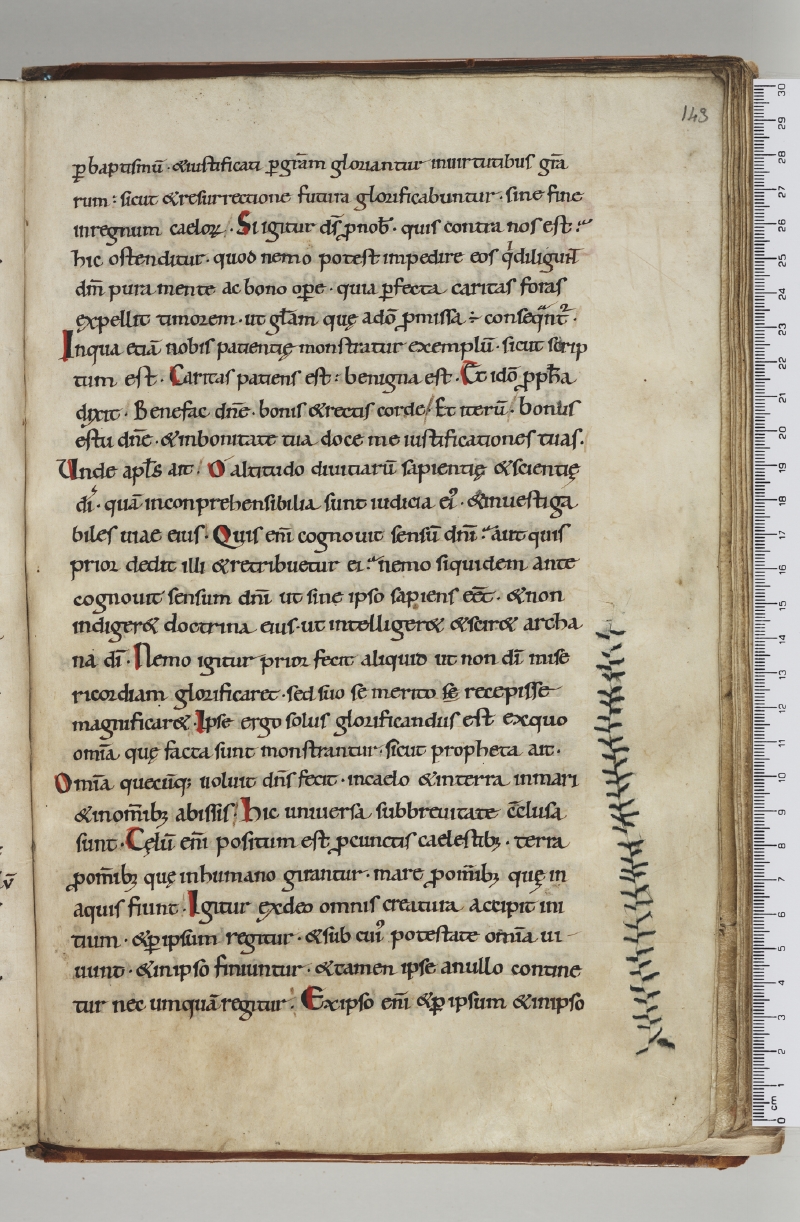 143
ꝑ baptismū · &iustificati ꝑ gr̄am gloriantur inuirtutibus gr̄a
rum : sicut &resurrectione futura glorificabuntur · sine fine
inregnum caeloꝝ · Si igitur ds̄ ꝓ nob̄ · quis contra nos est :
hic ostenditur · quod nemo potest impedire eos
dm̄ pura mente ac bono oꝑe · quia ꝑfecta caritas foras
expellit timorem · ut gl̄am quę ado ꝓmissa ÷
Inqua etiā nobis patientię monstratur exemplū · sicut scrip
tum est · Caritas patiens est : benigna est · Et ido ꝓph̄a
dixit · Benefac dn̄e · bonis &rectis corde · Et iterū · bonus
estu dn̄e · &inbonitate tua doce me iustificationes tuas .
Unde apl̄s ait · O altitudo diuitiarū sapientię &scientię
dī · quā inconprehensibilia sunt iudicia ei᾽ · &inuestiga
biles uiae eius · Quis em̄ cognouit sensū dn̄i : aut quis
prior dedit illi &retribuetur ei : nemo siquidem ante
cognouit sensum dn̄i ut sine ipso sapiens eēt · &non
indiger& doctrina eius · ut intelliger& &scir& archa
na dī · Nemo igitur prior fecit aliquid ut non dī mise
ricordiam glorificaret · sed suo se merito sę recepisse
magnificar& · Ipse ergo solus glorificandus est exquo
omīa quę facta sunt monstrantur · sicut propheta ait ·
Omīa quecūq; uoluit dn̄s fecit · incaelo &interra inmari
&inom̄ib; abissis · Hic uniuersa subbreuitate c̄clusa
sunt · Cęlū em̄ positum est ꝓ cunctis caelestib; · terra
ꝓ om̄ib; quę inhumano girantur · mare ꝓ om̄ib; quę in
aquis fiunt · Igitur exdeo omnis creatura accipit ini
tium · &ꝑ ipsum regitur · &sub cui᾽ potestate omīa ui
uunt · &inipso finiuntur · &tamen ipse anullo contine
tur nec umquā regitur · Exipso em̄ &ꝑ ipsum &inipso
0 1 2 3 4 5 6 7 8 9 10 11 12 13 14 15 16 17 18 19 20 21 22 23 24 25 26 27 28 29 30
cm